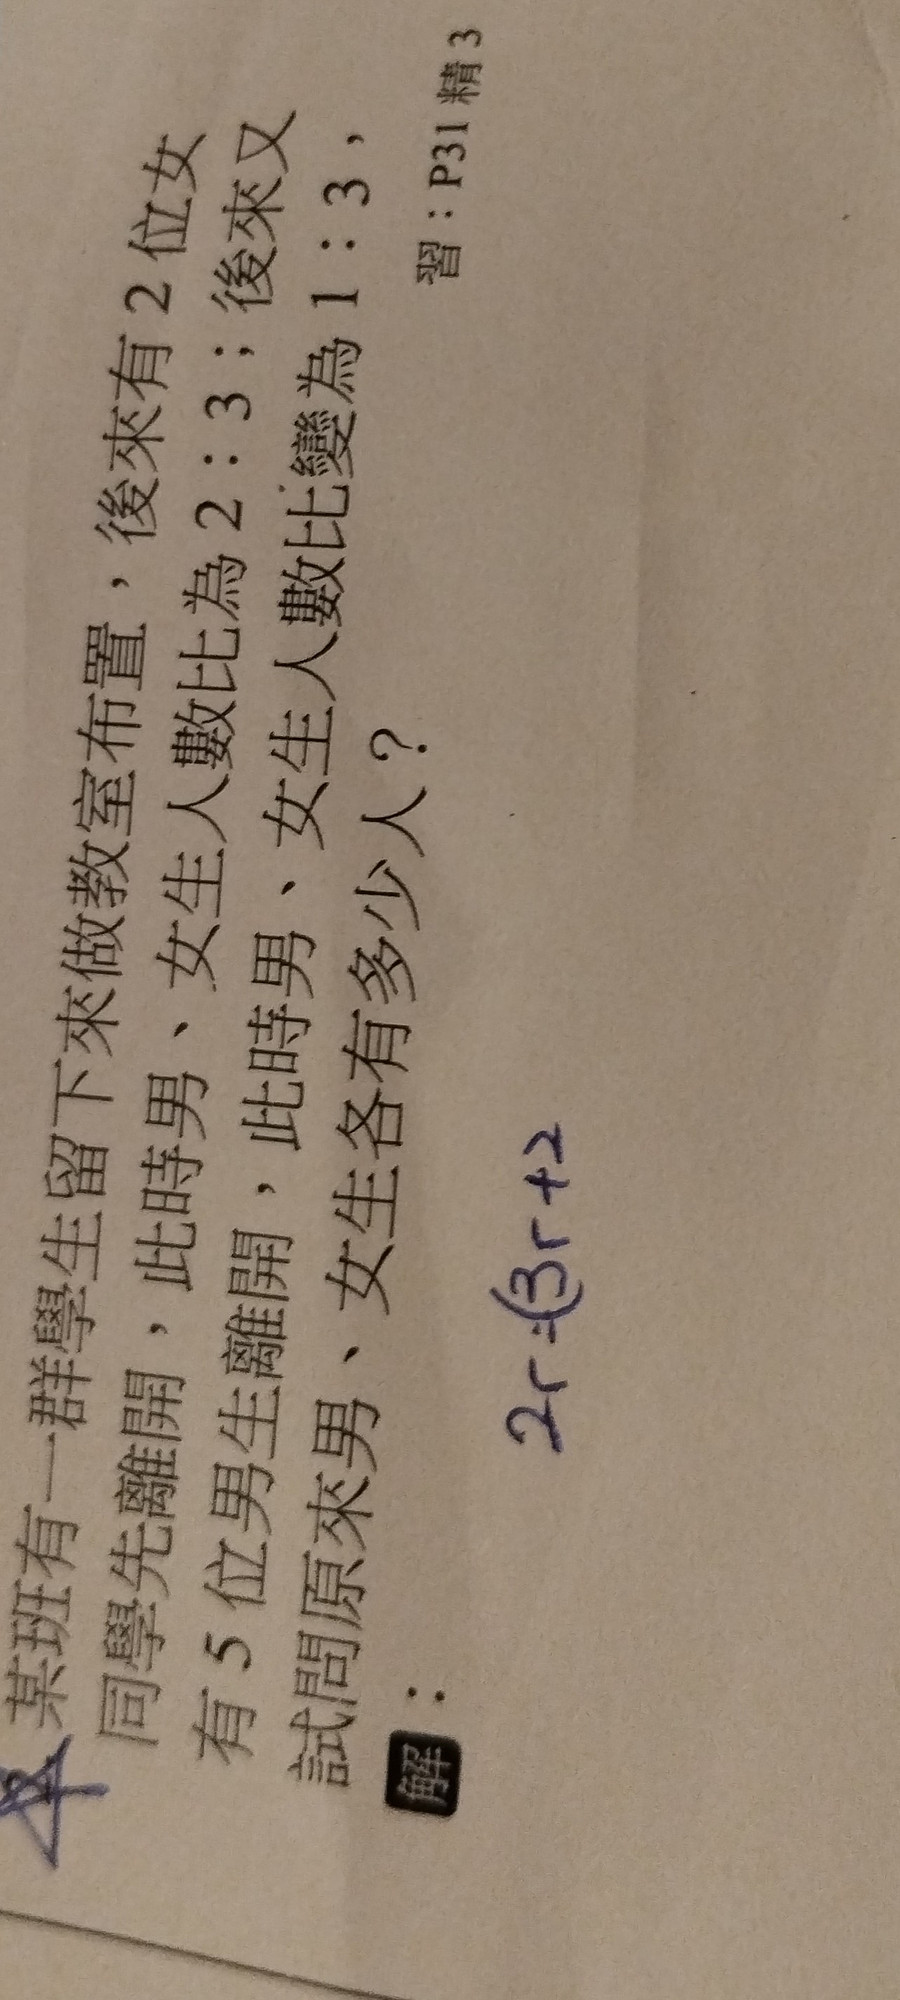 某班有一群學生留下來做教室布置，後來有 2 位女
同學先離開，此時男、女生人數比為 2：3；後來又
有 5 位男生離開，此時男、女生人數比變為 1：3，
試問原來男、女生各有多少人？
習：P31 精 3
解：
2r:(3r+2